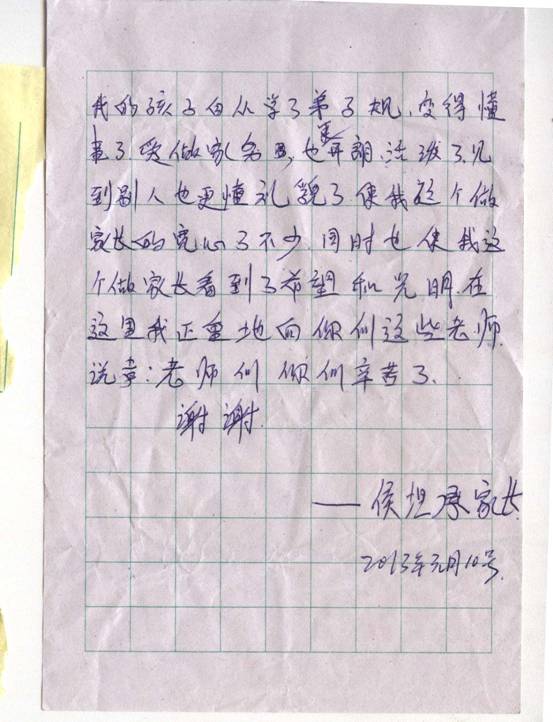 我的孩子自从学了弟子规.变得懂
事了.爱做家务了,也更开朗.活泼了.见
到别人也更懂礼貌了使我这个做
家长的宽心了不少.同时也使我这
个做家长看到了希望和光明.在
这里我正重地向你们这些老师.
说声:老师们你们辛苦了.
谢谢.
——侯坦承家长.
2013年元月10号.